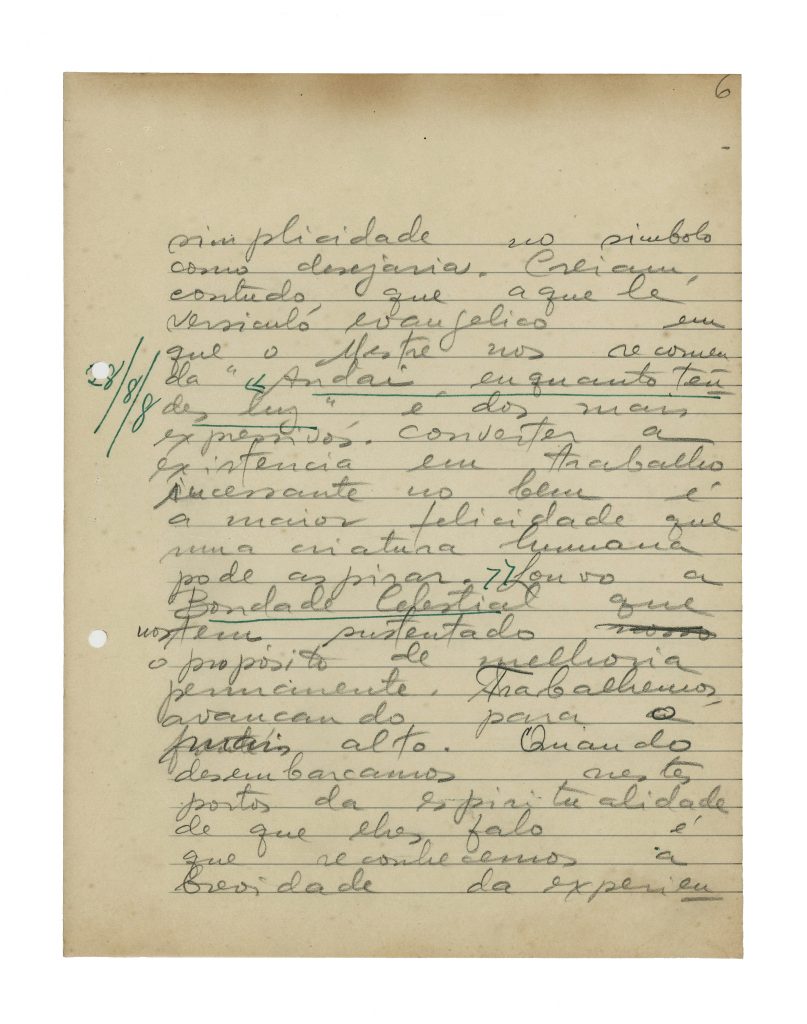 6
simplicidade no simbolo
como desejaria. Creiam,
contudo, que aquele
versiculo evangelico em
que o Mestre nos recomen
da " « Andai enquanto ten
des luz " é dos mais
expressivos. Converter a
existencia em trabalho
incessante no bem é
a maior felicidade que
uma criatura humana
pode aspirar. » Louvo a
Bondade Celestial que
nos tem sustentado nosso
o propósito de melhoria
permanente. Trabalhemos,
avancando para o
mais alto. Quando
desembarcamos nestes
portos da espiritualidade
de que lhes falo é
que reconhecemos a
brevidade da experien